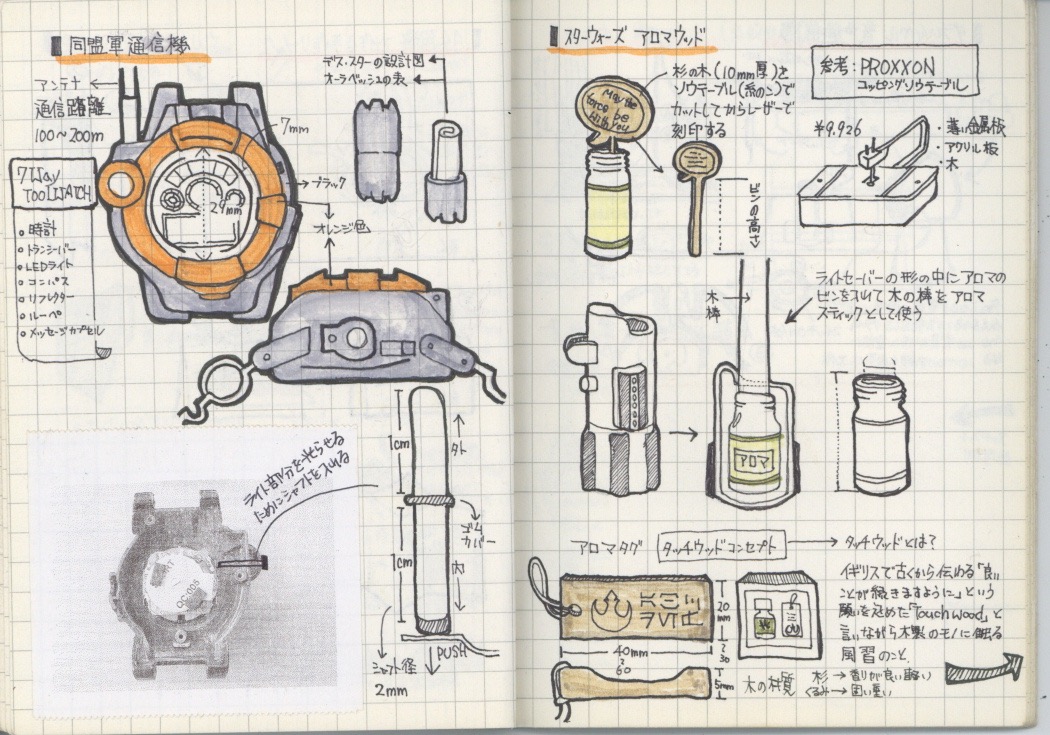 同盟軍通信機
アンテナ
通信距離
100～200m
7Way
TOOLWATCH
時計
トランシーバー
LEDライト
コンパス
リフレクター
ルーペ
メッセージカプセル
7mm
29mm
ブラック
オレンジ色
デス・スターの設計図
オーラベッシュの表
ライト部分を光らせる
ためにシャフトを入れる
1cm
外
ゴム
カバー
1cm
内
PUSH
シャフト径
2mm
スターウォーズ アロマウッド
杉の木(10mm厚)を
ソウテーブル(糸のこ)で
カットしてからレーザーで
刻印する
May the
force be
with you
ビンの高さ
参考:PROXXON
コッピングソウテーブル
¥9.926
・薄い金属板
・アクリル板
・木
木
棒
ライトセーバーの形の中にアロマの
ビンを入れて木の棒をアロマ
スティックとして使う
アロマ
アロマタグ
タッチウッドコンセプト
タッチウッドとは?
イギリスで古くから伝わる「良い
ことが続きますように」という
願いを込めた「Touch wood」と
言いながら木製のモノに触る
風習のこと.
20
mm
30
40mm
60
5mm
木の材質
杉→香りが良い軽い
くるみ→固い重い